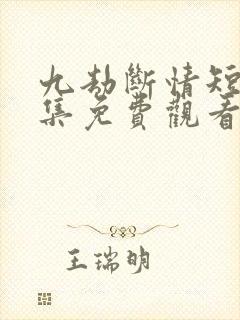 九劫斷情短
集免費觀看
王瑞明